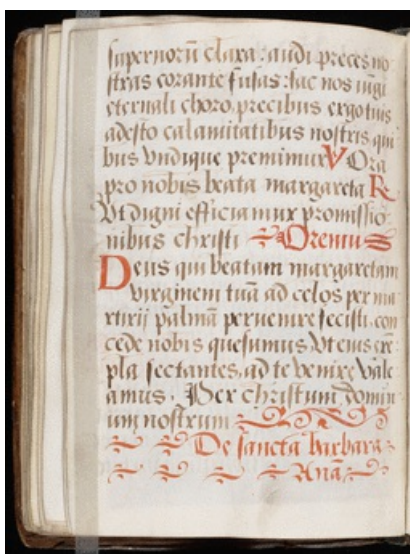 supernorū clara: audi preces no
stras corante fusas: fac nos iugi
eternali choro, precibus ergo tuis
adesto calamitatibus nostris qui
bus vndique premimur V Ora
pro nobis beata margareta R
Vt digni efficiamur promissio
nibus christi Oremus
Deus qui beatam margaretam
virginem tuā ad celos per ma
rtirij palmā peruenire fecisti, con
cede nobis quesumus, vt eius exē
pla sectantes, ad te venire vale
amus. Per christum dominu
um nostrum
De sancta barbara
Anā